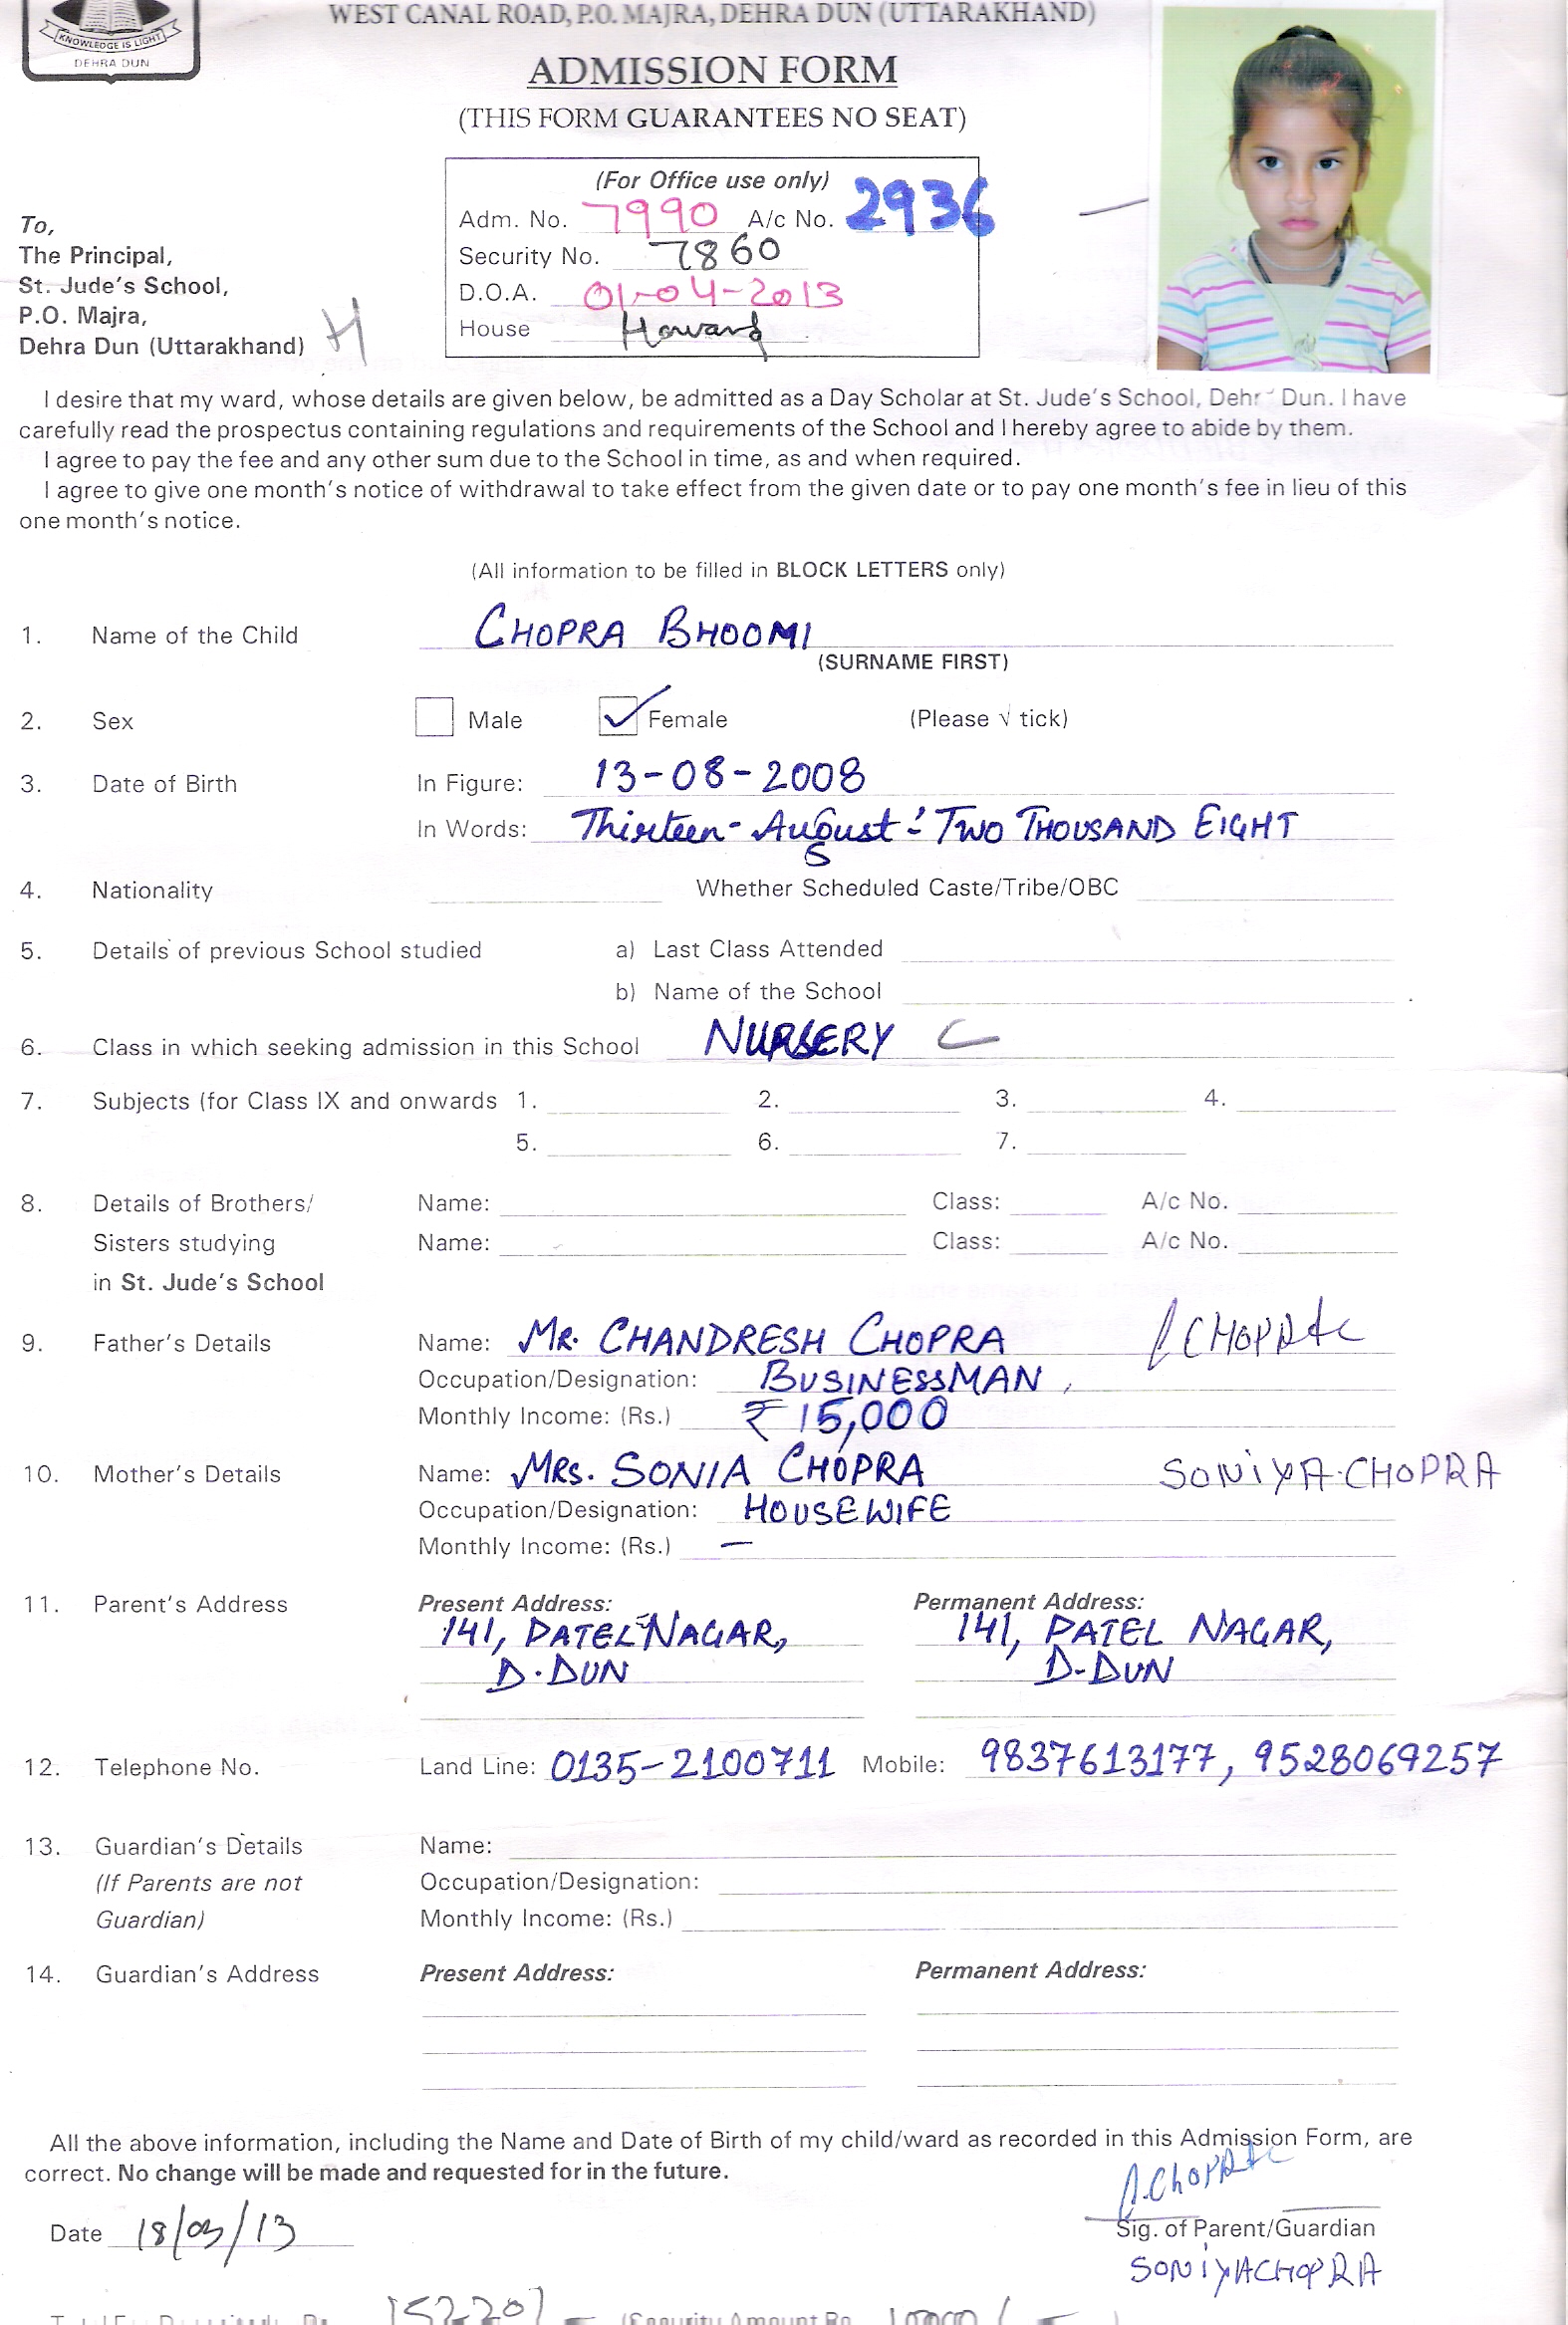 KNOWLEDGE IS LIGHT
DEHRA DUN
WEST CANAL ROAD, P.O. MAJRA, DEHRA DUN (UTTARAKHAND)
ADMISSION FORM
(THIS FORM GUARANTEES NO SEAT)
(For Office use only)
Adm. No. 7990 A/c No. 2936
Security No. 7860
D.O.A. 01-04-2013
House Howard
To,
The Principal,
St. Jude's School,
P.O. Majra,
Dehra Dun (Uttarakhand) H
I desire that my ward, whose details are given below, be admitted as a Day Scholar at St. Jude's School, Dehr Dun. I have
carefully read the prospectus containing regulations and requirements of the School and I hereby agree to abide by them.
I agree to pay the fee and any other sum due to the School in time, as and when required.
I agree to give one month's notice of withdrawal to take effect from the given date or to pay one month's fee in lieu of this
one month's notice.
(All information to be filled in BLOCK LETTERS only)
1. Name of the Child CHOPRA BHOOMI
(SURNAME FIRST)
2. Sex Male ✓ Female (Please √ tick)
3. Date of Birth In Figure: 13-08-2008
In Words: Thirteen - August - TWO THOUSAND EIGHT
4. Nationality Whether Scheduled Caste/Tribe/OBC
5. Details of previous School studied a) Last Class Attended
b) Name of the School
6. Class in which seeking admission in this School NURSERY C
7. Subjects (for Class IX and onwards 1. 2. 3. 4.
5. 6. 7.
8. Details of Brothers/ Name: Class: A/c No.
Sisters studying Name: Class: A/c No.
in St. Jude's School
9. Father's Details Name: MR. CHANDRESH CHOPRA CHOPRA
Occupation/Designation: BUSINESSMAN
Monthly Income: (Rs.) ₹ 15,000
10. Mother's Details Name: MRS. SONIA CHOPRA SONiYA.CHOPRA
Occupation/Designation: HOUSEWIFE
Monthly Income: (Rs.) —
11. Parent's Address Present Address: Permanent Address:
141, PATEL NAGAR, 141, PATEL NAGAR,
D.DUN D-DUN
12. Telephone No. Land Line: 0135-2100711 Mobile: 9837613177, 9528069257
13. Guardian's Details Name:
(If Parents are not Occupation/Designation:
Guardian) Monthly Income: (Rs.)
14. Guardian's Address Present Address: Permanent Address:
All the above information, including the Name and Date of Birth of my child/ward as recorded in this Admission Form, are
correct. No change will be made and requested for in the future.
Chopra
Date 18/03/13 Sig. of Parent/Guardian
SONiYACHOPRA